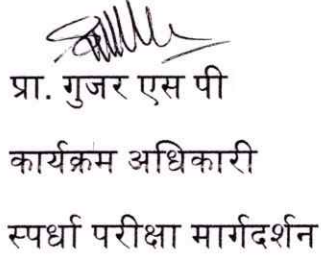 प्रा. गुजर एस पी
कार्यक्रम अधिकारी
स्पर्धा परीक्षा मार्गदर्शन